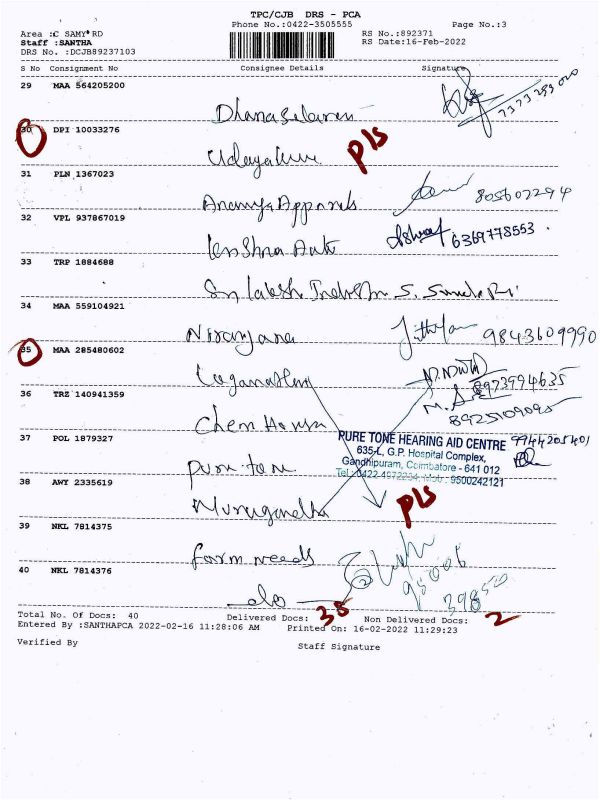 TPC/CJB DRS - PCA
Phone No.:0422-3505555 Page No.:3
Area :C SAMY RD RS No.:892371
Staff :SANTHA RS Date:16-Feb-2022
DRS No. :DCJB89237103
S No Consignment No Consignee Details Signature
29 MAA 564205200
7373289020
30 DPI 10033276
Udayakum pls
31 PLN 1367023
Ananya Apparels 805602294
32 VPL 937867019
6369778553.
33 TRP 1884688
34 MAA 559104921
Niranjana 9843609990
35 MAA 285480602
Loganathan 8973994635
36 TRZ 140941359
Chem House 8925109095
37 POL 1879327
PURE TONE HEARING AID CENTRE 9944205401
635-L, G.P. Hospital Complex,
Gandhipuram, Coimbatore - 641 012
Tel : 0422-4972234, Mob : 9500242121
Pure tone
38 AWY 2335619
Murugandha pls
39 NKL 7814375
farm needs 95006
40 NKL 7814376
do 398520
Total No. Of Docs: 40 Delivered Docs: 38 Non Delivered Docs: 2
Entered By :SANTHAPCA 2022-02-16 11:28:06 AM Printed On: 16-02-2022 11:29:23
Verified By Staff Signature